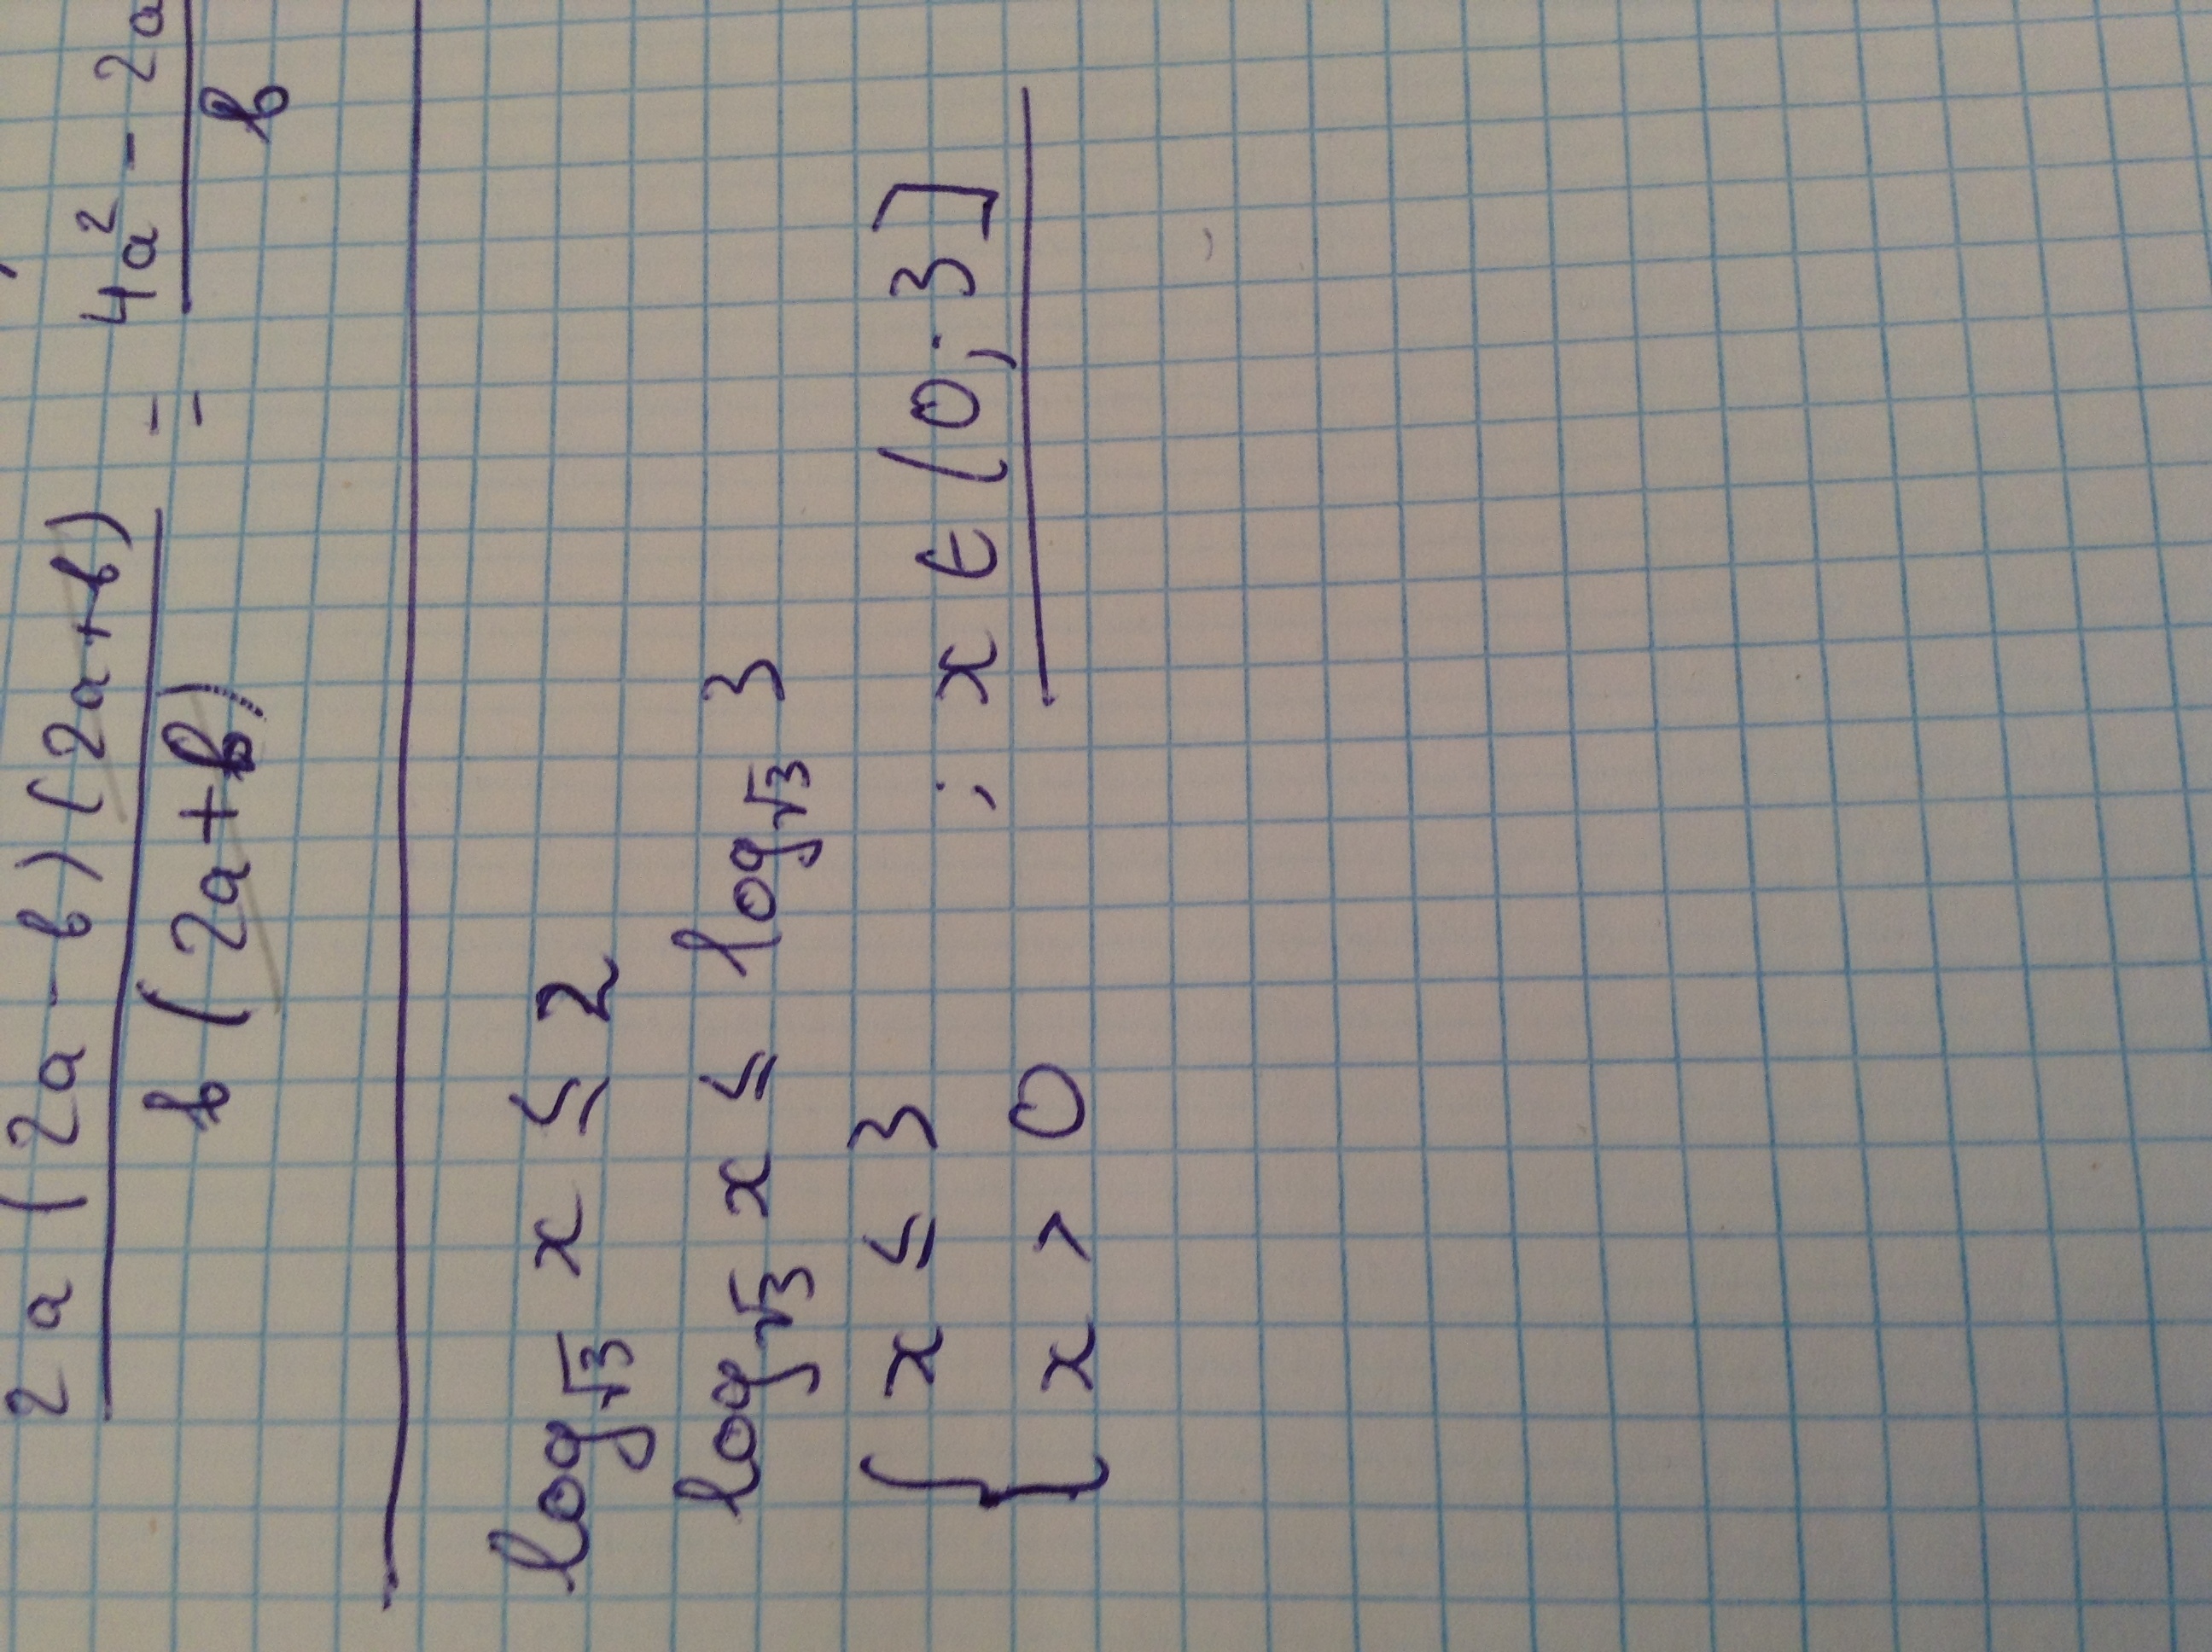 2a (2a - b) (2a+b) = 4a² - 2a
b (2a+b) b
log√3 x ≤ 2
log√3 x ≤ log√3 3
{ x ≤ 3 ; x ∈ (0; 3]
x > 0